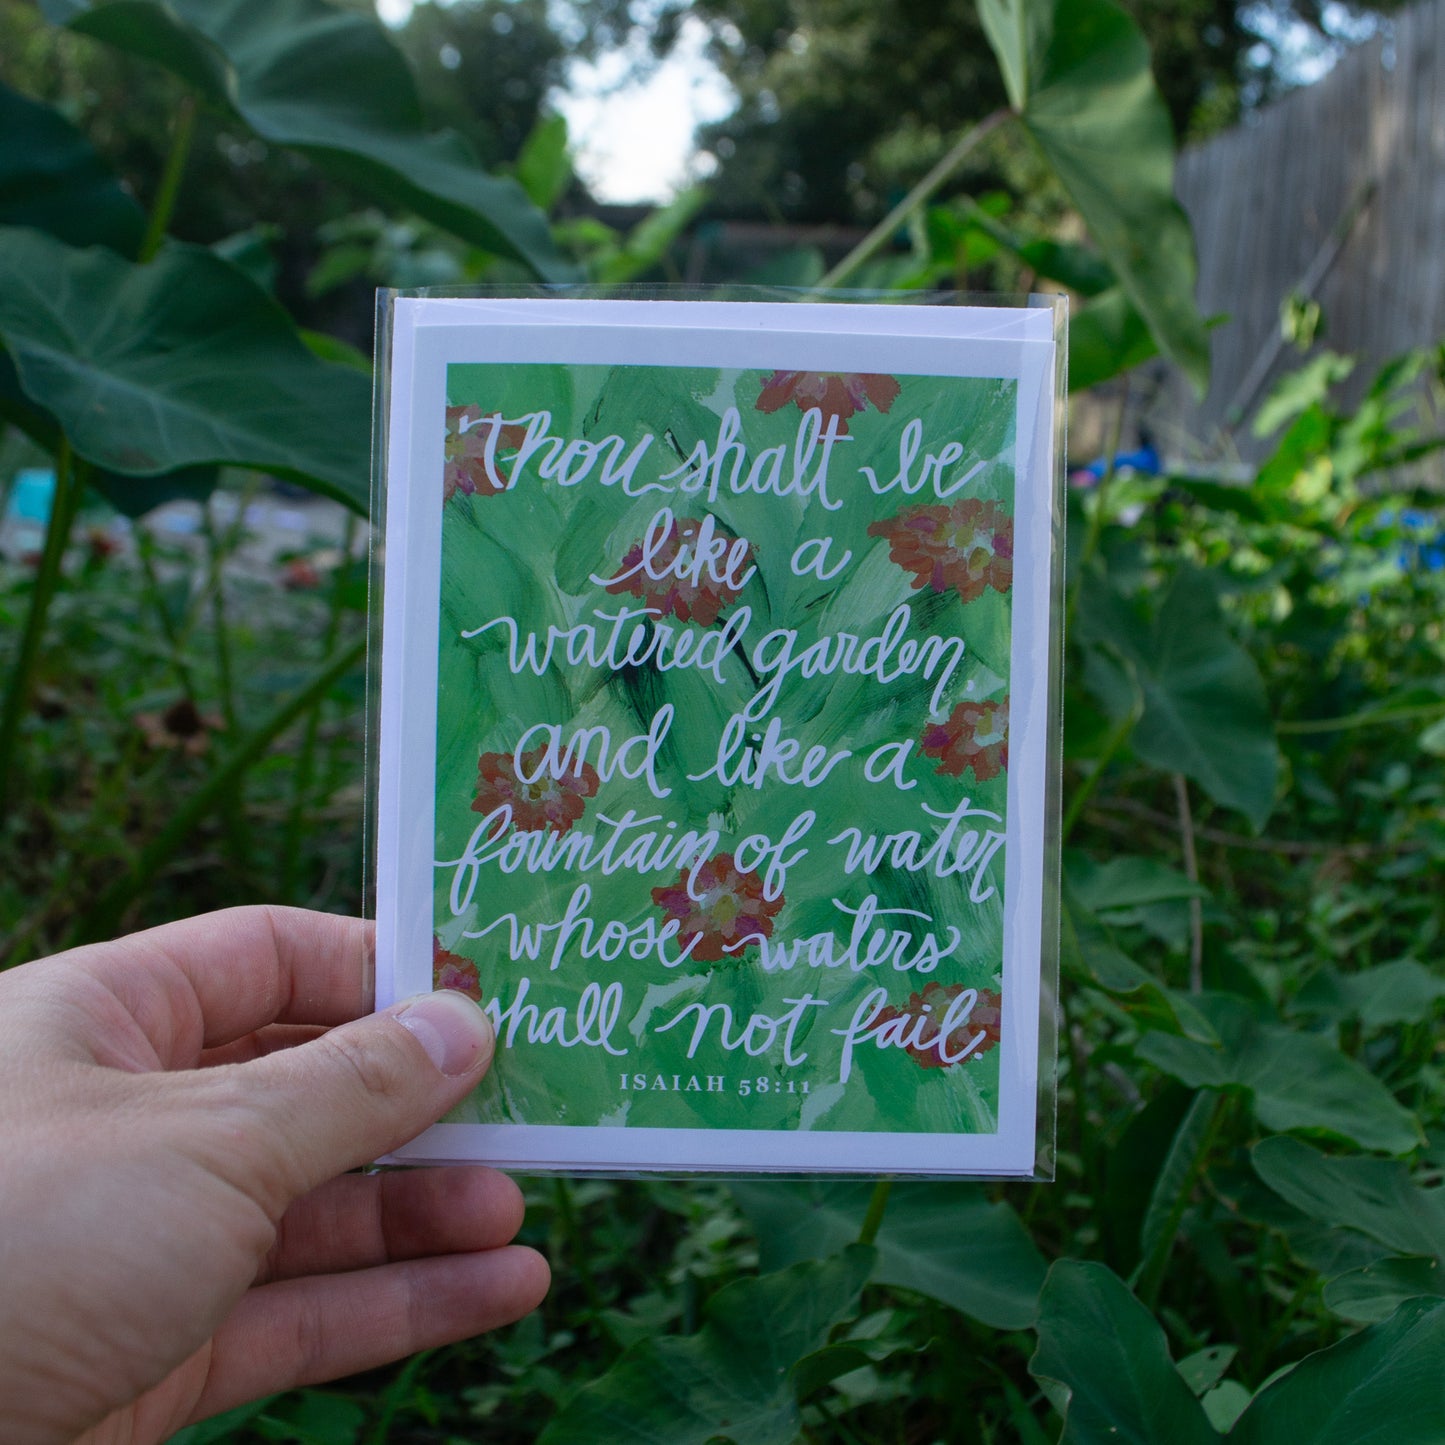 Thou shalt be
like a
watered garden,
and like a
fountain of water
whose waters
shall not fail.
ISAIAH 58:11